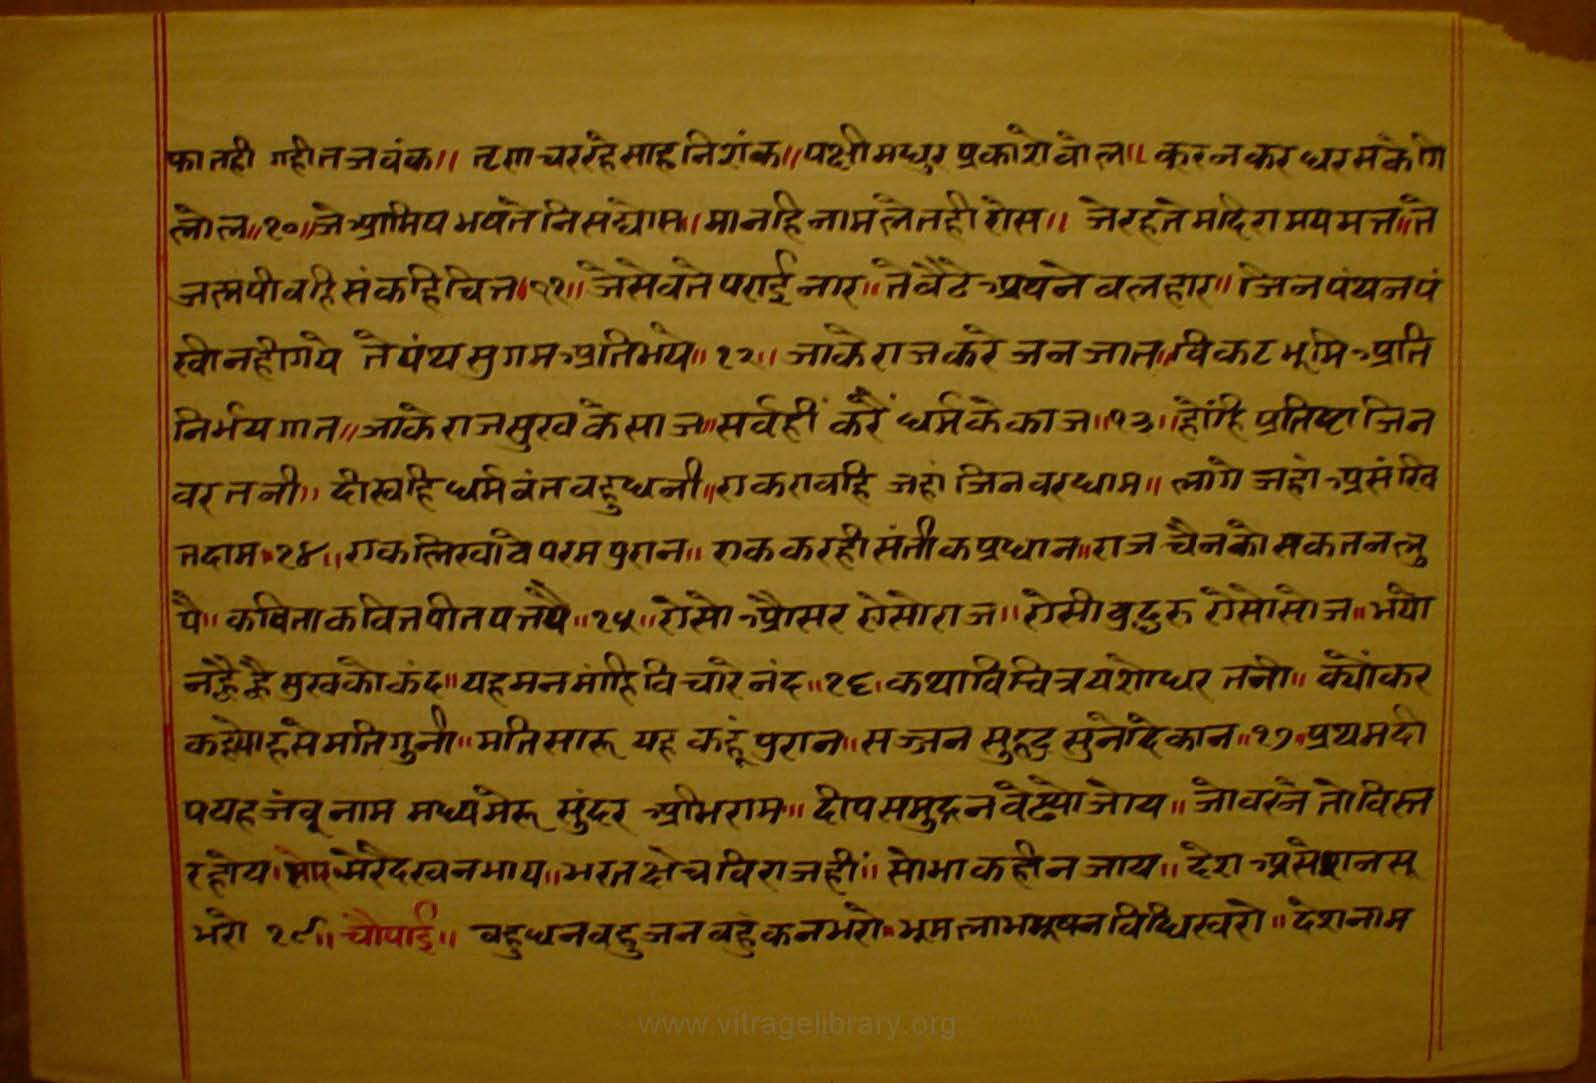 फा तही गहीत जवंक॥ तृण चर रहे साह निशंक॥ पक्षी मधुर प्रकाशे वोल॥ करन कर धर सके गि
लोल॥१०॥ जे आमिष भषते निसद्योस॥ मानहि नाम लेतही रोस॥ जे रहते मदिरा मयमत्त॥ ते
जलपीवहि संकहि चित्त॥११॥ जे सेवते पराई नार॥ ते वैठे अपने वलहार॥ जिन पंथन पं
खी नही गये ते पंथ सुगम अतिभये॥१२॥ जाके राज करे जन जात॥ विकट भूमि अति
निर्भय गात॥ जाके राज सुख के साज॥ सर्वहीं करैं धर्म के काज॥१३॥ होंहि प्रतिष्टा जिन
वर तनी॥ दीखहि धर्मवंत वहुधनी॥ एक करावहि जहां जिनवर धाम॥ लागे जहां असंखि
त दाम॥१४॥ एक लिखावे परम पुरान॥ एक करही संतीक प्रधान॥ राज चैन को सकत न लु
पै॥ कविता कवित्त पीत पत्त पै॥१५॥ ऐसो औसर ऐसो राज॥ ऐसी वु द्रु रु ऐसो सोज॥ भयो
न ह्वै है सुख को कंद॥ यह मन मांहि विचारे नंद॥१६॥ कथा विचित्र यशोधर तनी॥ क्योंकर
कह्यो हसे मति गुनी॥ मति सारू यह कहूं पुरान॥ सज्जन सुहृद सुनो दे कान॥१७॥ प्रथम दी
प यह जंवू नाम मध्य मेरू सुंदर अभिराम॥ दीप समुद्रन वेढ्यो जोय॥ जो वरने तो विस्त
र होय॥ मेरै दखन भाय॥ भरत क्षेत्र विराजहीं॥ सोभा कही न जाय॥ देश असे शन सू
भरो १९॥ चौपाई॥ वहुधन वहुजन वहुकन भरो॥ भूम लाभ भूषन विधि खरो॥ देश नाम
www.vitragelibrary.org